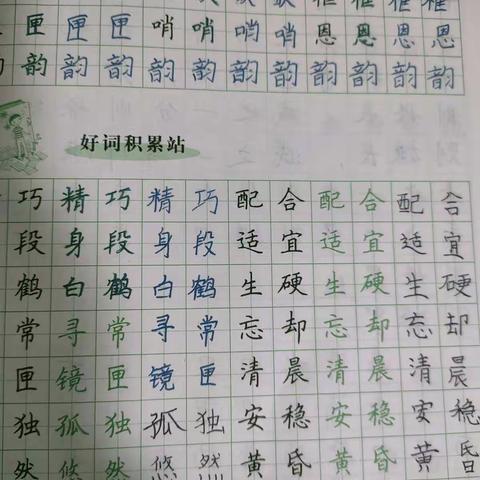 恩 恩 恩 恩
匣 匣 匣 哨 哨 哨 哨 恩 恩 恩 恩
韵 韵 韵 韵 韵 韵 韵 韵 韵 韵 韵
好词积累站
巧 精 巧 精 巧 配 合 配 合 配 合
段 身 段 身 段 适 宜 适 宜 适 宜
鹤 白 鹤 白 鹤 生 硬 生 硬 生 硬
常 寻 常 寻 常 忘 却 忘 却 忘 却
匣 镜 匣 镜 匣 清 晨 清 晨 清 晨
独 孤 独 孤 独 安 稳 安 稳 安 稳
然 悠 然 悠 然 黄 昏 黄 昏 黄 昏